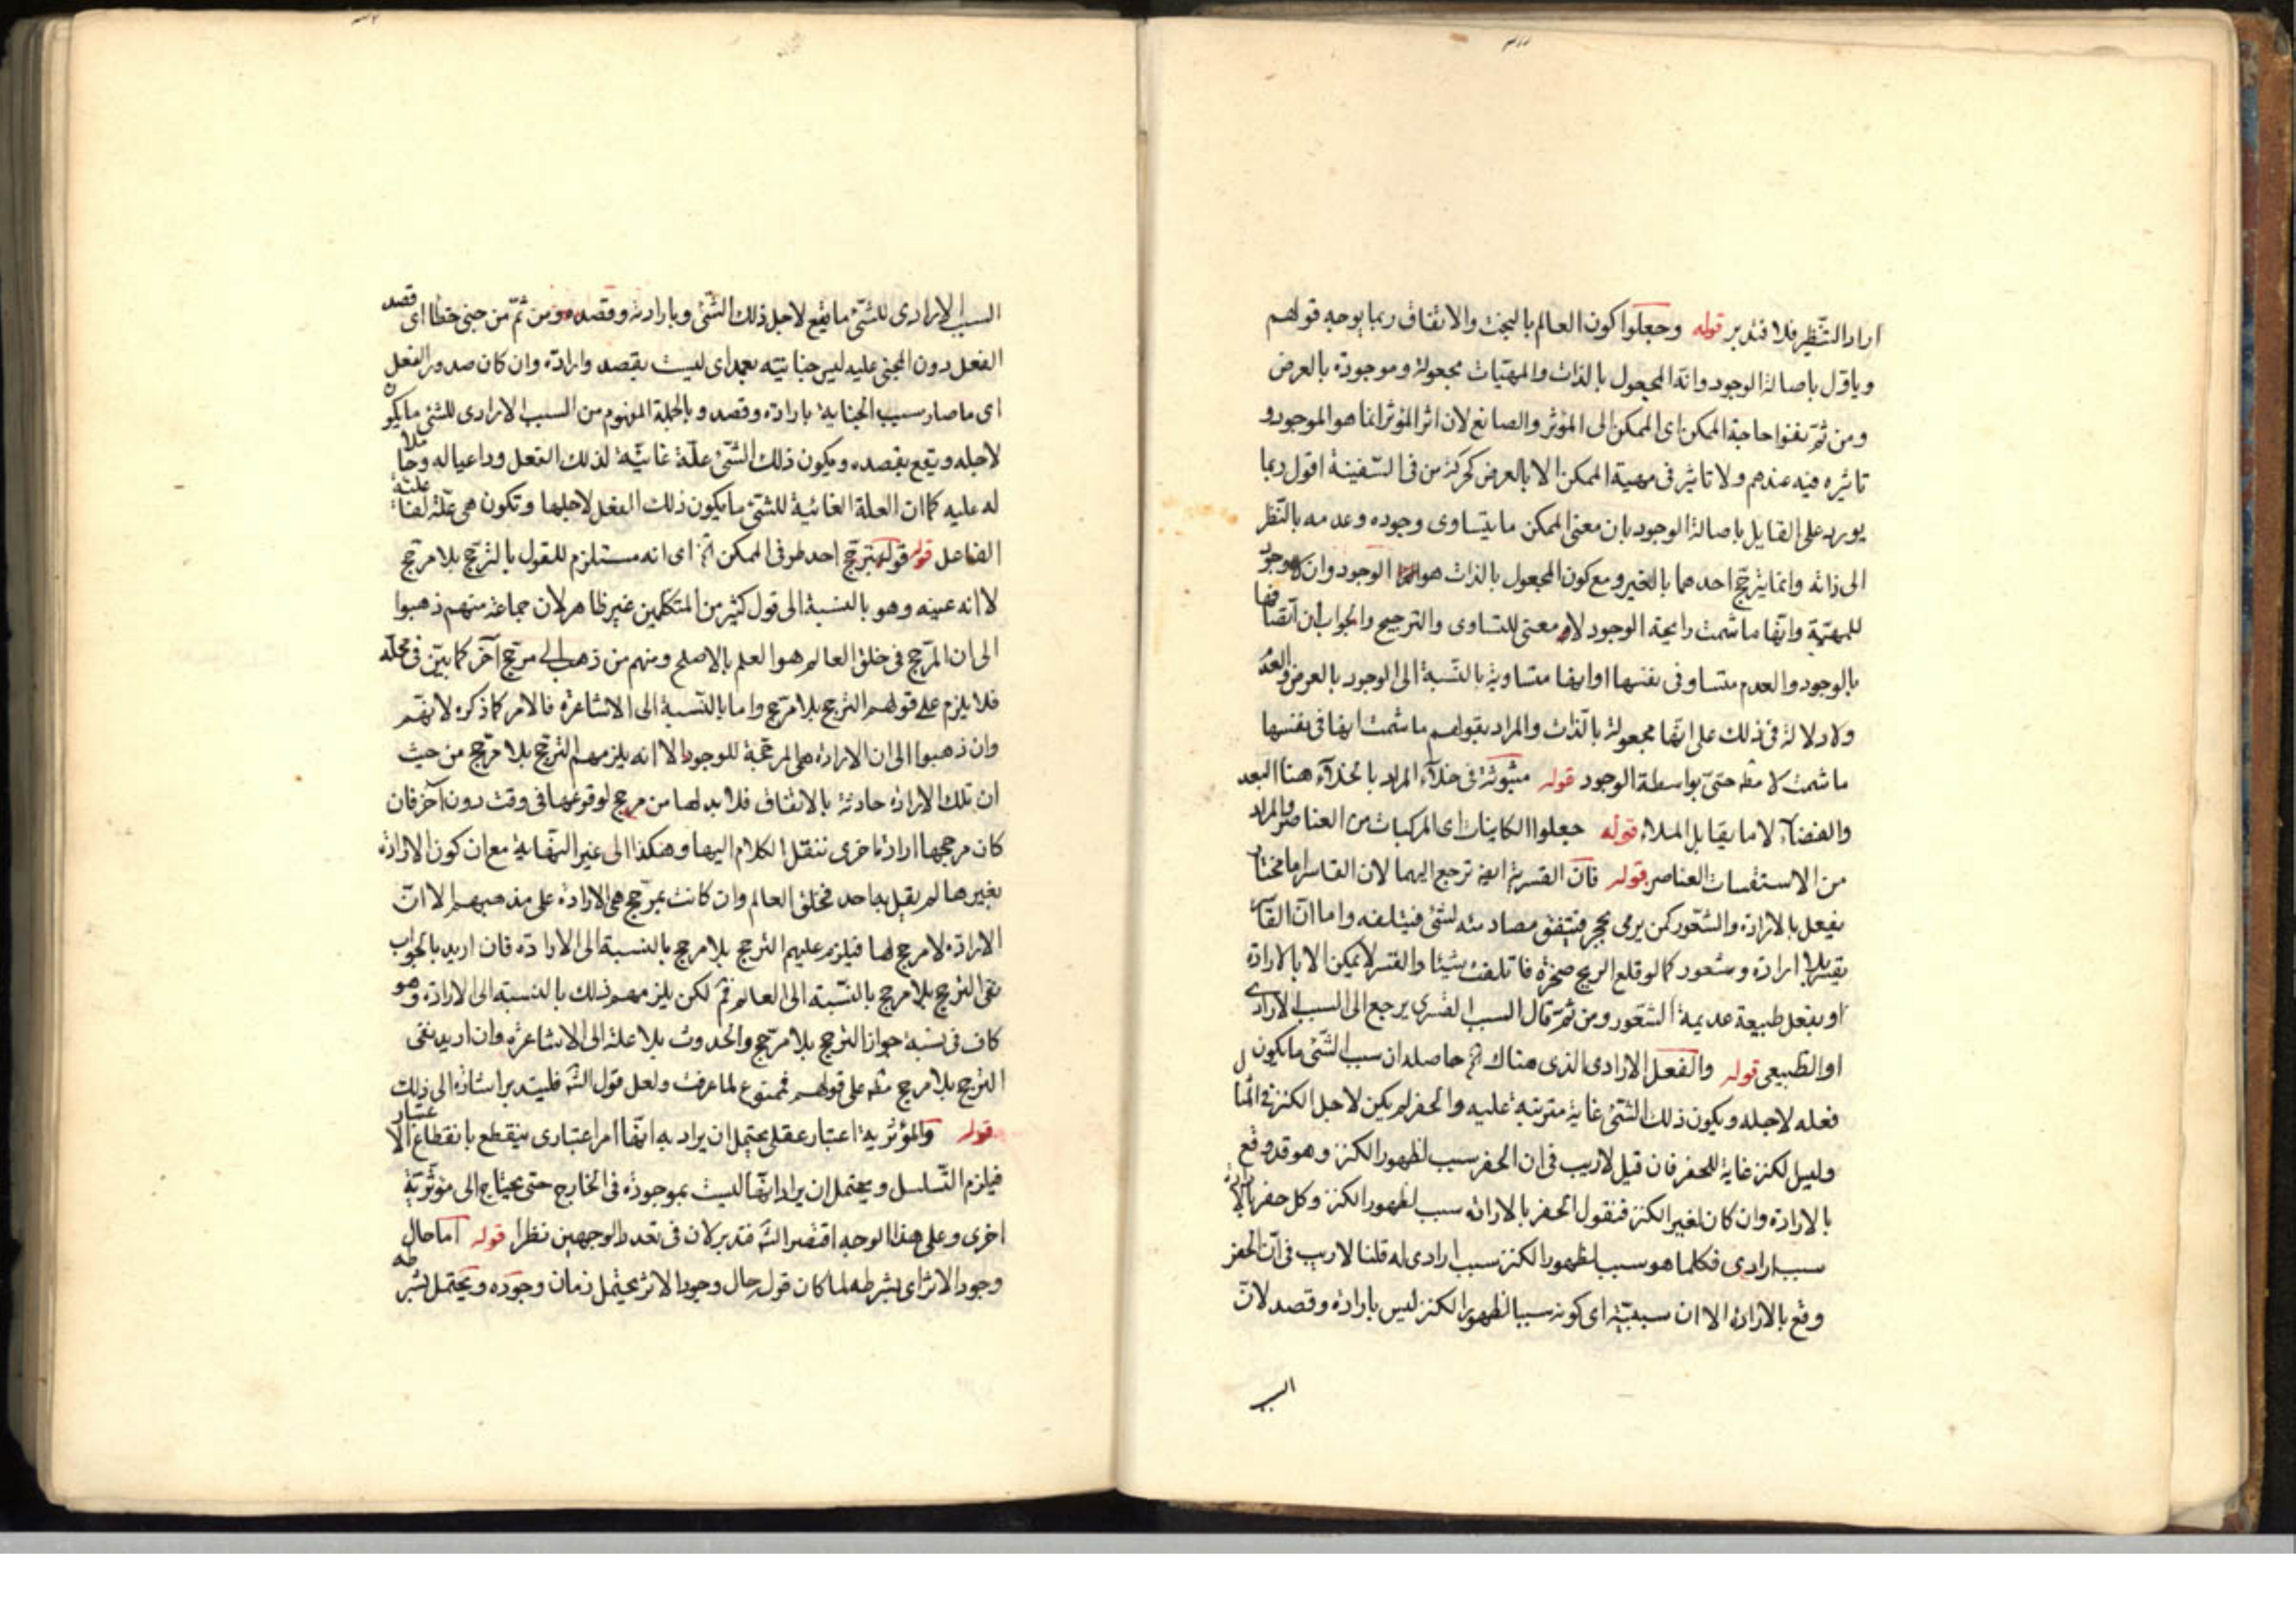 اراد التنظير فلا فتدبر قوله وجعلوا كون العالم بالبخت والاتفاق ربما يوجه قولهم
وياوّل باصالة الوجود وانه المجعول بالذات والمهيّات مجعولة وموجودة بالعرض
ومن ثمّ نفوا حاجة الممكن اى الممكن الى المؤثر والصانع لان اثر المؤثر انما هو الموجود و
تاثيره فيه عندهم ولا تاثير فى مهية الممكن الا بالعرض كحركة من فى السّفينة اقول ربما
يورد على القايل باصالة الوجود بان معنى الممكن ما يتساوى وجوده وعدمه بالنّظر
الى ذاته وانما يترجّح احدهما بالغير ومع كون المجعول بالذات هو الوجود وان لا وجود
للمهيّة وانّها ما شمت رايحة الوجود لا معنى للتساوى والترجيح والجواب ان اتّصافها
بالوجود والعدم متساو فى نفسها او انها متساوية بالنّسبة الى الوجود بالعرض والعدم
ولا دلالة فى ذلك على انّها مجعولة بالذات والمراد بقولهم ما شمت انها فى نفسها
ما شمت لا مطه حتىّ بواسطة الوجود قوله مبثوثة فى خلآء المراد بالخلآء هنا البعد
والفضآء لا ما يقابل الملاء قوله جعلوا الكاينات اى المركبات من العناصر والمراد
من الاستقسات العناصر قوله فانّ القسرية ايضا ترجع اليهما لان القاسر اما مختار
يفعل بالارادة والشّعور كمن يرمى بحجر فيتفق مصادمته لشئ فيتلفه واما انّ القاسر
يقسر بلا ارادة وشعور كما لو قلع الريح صخرة فاتلفت شيئا والقسر لا يمكن الا بالارادة
او بفعل طبيعة عديمة الشّعور ومن ثمّ قال السبب القسرى يرجع الى السبب الارادى
او الطّبيعى قوله والفعل الارادى الذى هناك الخ حاصله ان سبب الشّئ ما يكون
فعله لاجله ويكون ذلك الشّئ غاية مترتبة عليه والحفر لم يكن لاجل الكنز فى المثال
وليس الكنز غاية للحفر فان قيل لا ريب فى ان الحفر سبب لظهور الكنز وهو قد وقع
بالارادة وان كان لغير الكنز فنقول الحفر بالارادة سبب لظهور الكنز وكل حفر بالارادة
سبب ارادى فكلما هو سبب لظهور الكنز سبب ارادى له قلنا لا ريب فى انّ الحفر
وقع بالارادة الا ان سببيّة اى كونه سببا لظهور الكنز ليس بارادة وقصد لانّ
السبب
السبب الارادى للشّئ ما يقع لاجل ذلك الشّئ وبارادته وقصده ومن ثمّ من جنى خطأ اى قصد
الفعل دون المجنى عليه ليس جنايته بعمد اى ليست بقصد وارادة وان كان صدور الفعل
اى ما صار سبب الجناية بارادة وقصد وبالجملة المفهوم من السبب الارادى للشّئ ما يكون
لاجله ويقع بقصده ويكون ذلك الشّئ علّة غائيّة لذلك الفعل وداعيا له وحاملا
له عليه كما ان العلة الغائية للشّئ ما يكون ذلك الفعل لاجلها وتكون هى علّة لفاعلية
الفاعل قوله قولهم بترجّح احد طرفى الممكن الخ اى انه مستلزم للقول بالترجّح بلا مرجّح
لا انه عينه وهو بالنسبة الى قول كثير من المتكلمين غير ظاهر لان جماعة منهم ذهبوا
الى ان المرجّح فى خلق العالم هو العلم بالاصلح ومنهم من ذهب الى مرجّح آخر كما بيّن فى محلّه
فلا يلزم على قولهم الترجّح بلا مرجّح واما بالنّسبة الى الاشاعرة فالامر كما ذكره لانهّم
وان ذهبوا الى ان الارادة هى المرجّحة للوجود الا انه يلزمهم الترجّح بلا مرجّح من حيث
ان تلك الارادة حادثة بالاتفاق فلا بد لها من مرجح لوقوعها فى وقت دون آخر فان
كان مرجحها ارادة اخرى ننقل الكلام اليها وهكذا الى غير النّهاية مع ان كون الارادة
بغيرها لم يقل به احد فخلق العالم وان كانت بمرجّح هى الارادة على مذهبهم الا انّ
الارادة لا مرجح لها فيلزم عليهم الترجح بلا مرجح بالنسبة الى الارادة فان اريد بالجواب
نفى الترجح بلا مرجح بالنّسبة الى العالم فثمّ لكن يلزمهم ذلك بالنسبة الى الارادة وهو
كاف فى نسبة جواز الترجح بلا مرجّح والحدوث بلا علة الى الاشاعرة وان اريد نفى
الترجح بلا مرجح مطه على قولهم فممنوع لما عرفت ولعل قول الشّه فليتدبر اشارة الى ذلك
قوله والمؤثرية اعتبار عقلى يحتمل ان يراد به انّها امر اعتبارى ينقطع بانقطاع الاعتبار
فيلزم التّسلسل ويحتمل ان يراد انهّا ليست بموجودة فى الخارج حتى يحتاج الى مؤثّريّة
اخرى وعلى هذا الوجه اقتصر الشّه فتدبر لان فى تعدد الوجهين نظرا قوله اما حال
وجود الاثر اى بشرطه لما كان قوله حال وجود الاثر يحتمل زمان وجوده ويحتمل بشرطه